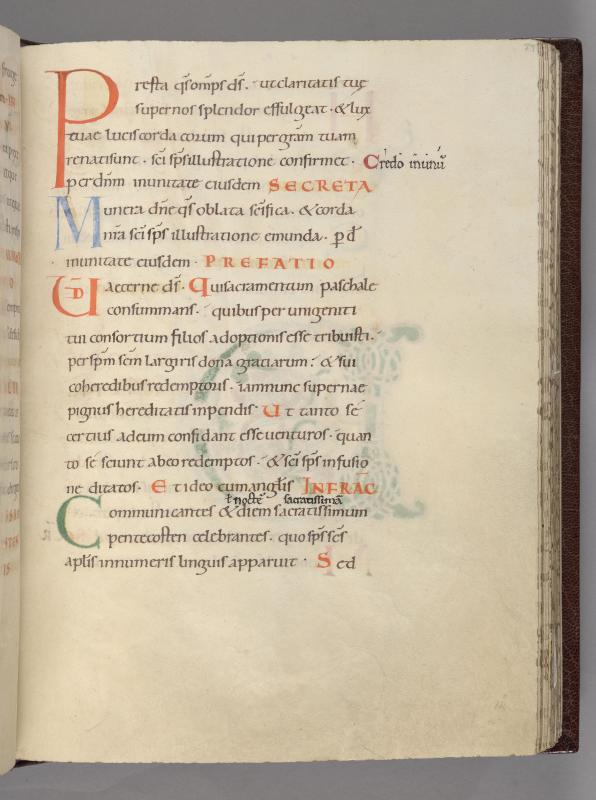 Presta qs omps ds. ut claritatis tuę
supernos splendor effulgeat. & lux
tuae lucis corda eorum qui per grãm tuam
renati sunt. sci sps illustratione confirmet. Credo in unũ
per dñm in unitate eiusdem SECRETA
Munera dñe qs oblata scifica. & corda
nr̃a sci sps illustratione emunda. p d
in unitate eiusdem. PREFATIO
UD aeterne ds. Qui sacramentum paschale
consummans. quibus per unigeniti
tui consortium filios adoptionis esse tribuisti.
per spm scm largiris dona gratiarum. & sui
coheredibus redemptoris. iam nunc supernae
pignus hereditatis inpendis. Ut tanto sé
certius ad eum confidant esse venturos. quan
to sé sciunt ab eo redemptos. & sci sps infusio
ne ditatos. Et ideo cum anglis INFRAC
ł nocté sacratissimã
Communicantes & diem sacratissimum
pentecosten celebrantes. quo sps scs
aplis innumeris linguis apparuit. Sed